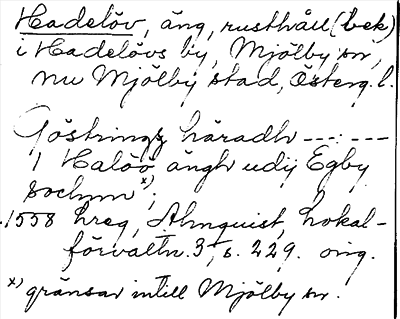 Hadelöv, äng, rusthåll (bek)
i Hadelövs by, Mjölby sn,
nu Mjölby stad, Österg. l.
Göstringz häradh ---:---
1 Halöö ängh udij Egby
sochnn x);
1558 hreg, Almquist, Lokal-
förvaltn. 3, s. 229. orig.
x) gränsar intill Mjölby sn.